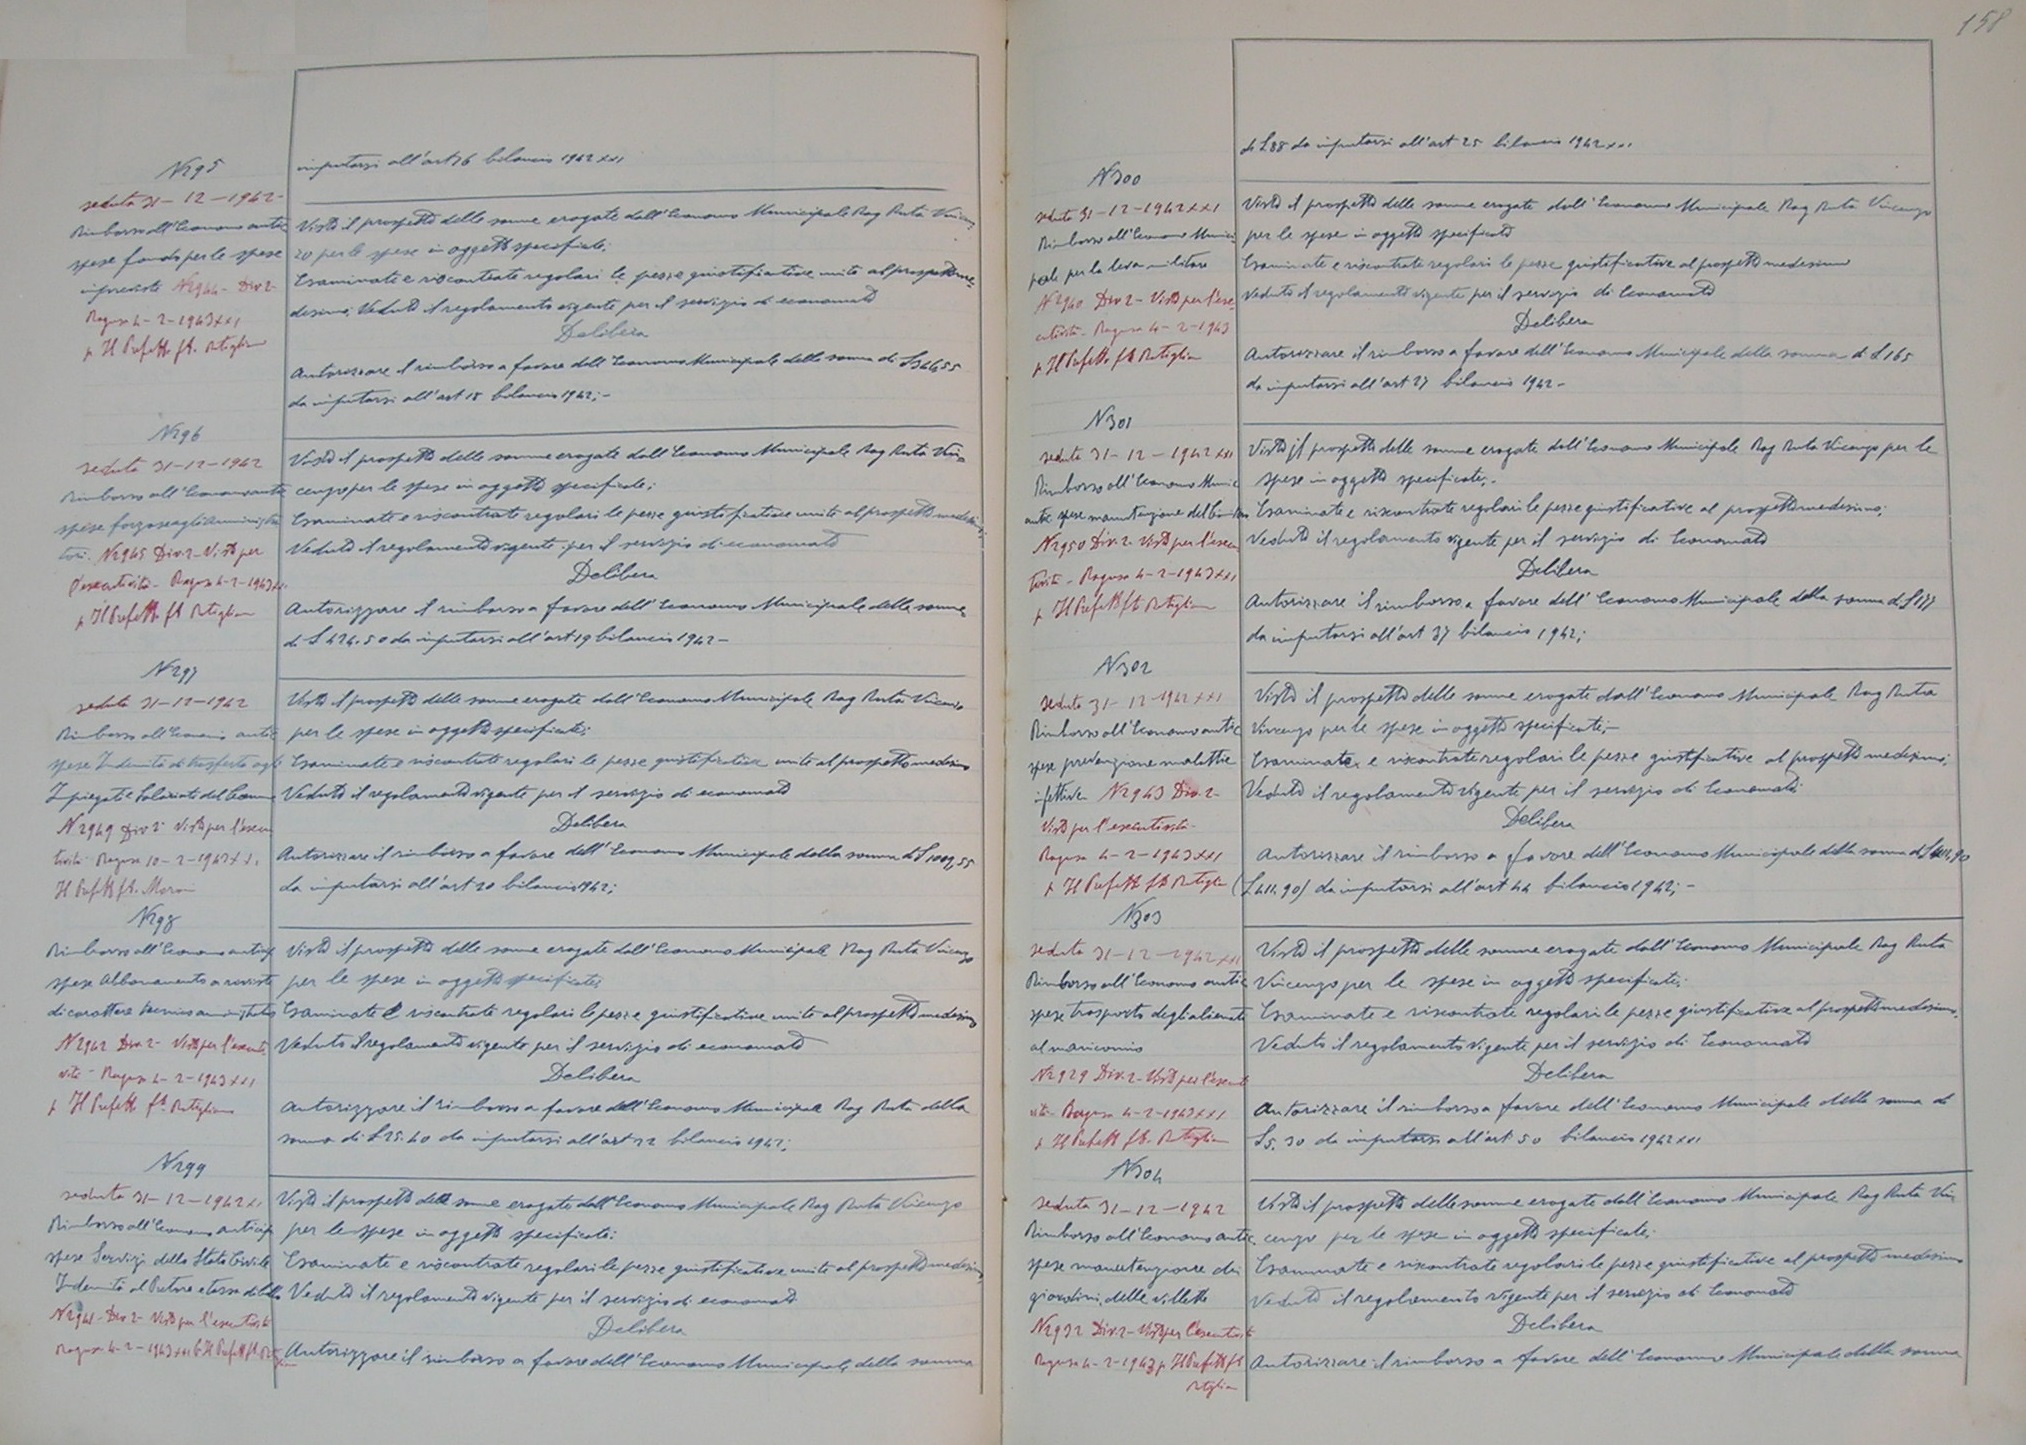 imputarsi all'art 16 bilancio 1942 XXI
N 295
seduta 31-12-1942-
Rimborso all'Economo antic
spese fondo per le spese
impreviste N 2944 - Div. 2-
Ragusa 4-2-1943 XXI
p Il Prefetto ft. Rutiglian
Visto il prospetto delle somme erogate dall'Economo Municipale Rag Ruta Vincen
zo per le spese in oggetto specificate;
Esaminate e riscontrate regolari le pezze giustificative unite al prospetto me
desimo; Veduto il regolamento vigente per il servizio di economato
Delibera
Autorizzare il rimborso a favore dell'Economo Municipale della somma di
da imputarsi all'art 18 bilancio 1942;-
N 296
seduta 31-12-1942
Rimborso all'Economo antic
spese forzose agli amministra
tori. N 2945 Div. 2- Visto per
l'esecutività - Ragusa 4-2-1943 XXI
p Il Prefetto ft Rutiglian
Visto il prospetto delle somme erogate dall'Economo Municipale Rag Ruta Vin
cenzo per le spese in oggetto specificate;
Esaminate e riscontrate regolari le pezze giustificative unite al prospetto medesimo
Veduto il regolamento vigente per il servizio di economato
Delibera
Autorizzare il rimborso a favore dell'Economo Municipale della somma
di L 424.50 da imputarsi all'art 19 bilancio 1942-
N 297
seduta 31-12-1942
Rimborso all'Economo antic
spese Indennità di trasferta agli
Impiegati e Salariati del Comune
N 2949 Div 2- Visto per l'esecu
tività Ragusa 10-2-1943 XXI
Il Prefetto ft.
Visto il prospetto delle somme erogate dall'Economo Municipale Rag Ruta Vincenzo
per le spese in oggetto specificate;
Esaminate e riscontrate regolari le pezze giustificative unite al prospetto medesimo
Veduto il regolamento vigente per il servizio di economato
Delibera
Autorizzare il rimborso a favore dell'Economo Municipale della somma di
da imputarsi all'art 20 bilancio 1942;
N 298
Rimborso all'Economo anticip
spese Abbonamento a riviste
di carattere tecnico amministrativo
N 2942 Div 2- Visto per l'esecuti
vità - Ragusa 4-2-1943 XXI
p Il Prefetto ft Rutigliano
Visto il prospetto delle somme erogate dall'Economo Municipale Rag Ruta Vincenzo
per le spese in oggetto specificate;
Esaminate e riscontrate regolari le pezze giustificative unite al prospetto medesimo
Veduto il regolamento vigente per il servizio di economato
Delibera
Autorizzare il rimborso a favore dell'Economo Municipale Rag Ruta della
somma di L 25.40 da imputarsi all'art 22 bilancio 1942;
N 299
seduta 31-12-1942 XXI
Rimborso all'Economo anticip
spese Servizi dello Stato Civile
Indennità al Pretore e tasse di bollo
N 2941- Div 2- Visto per l'esecutività
Ragusa 4-2-1943 XXI p Il Prefetto ft Ruti
glian
Visto il prospetto delle somme erogate dall'Economo Municipale Rag Ruta Vincenzo
per le spese in oggetto specificate;
Esaminate e riscontrate regolari le pezze giustificative unite al prospetto medesimo
Veduto il regolamento vigente per il servizio di economato
Delibera
Autorizzare il rimborso a favore dell'Economo Municipale della somma
158
di L 88 da imputarsi all'art 25 bilancio 1942 XXI
N 300
seduta 31-12-1942 XXI
Rimborso all'Economo Munici
pale per la leva militare
N 2940 Div 2- Visto per l'ese
cutività - Ragusa 4-2-1943
p Il Prefetto ft Rutiglian
Visto il prospetto delle somme erogate dall'Economo Municipale Rag Ruta Vincenzo
per le spese in oggetto specificato
Esaminate e riscontrate regolari le pezze giustificative al prospetto medesimo
Veduto il regolamento vigente per il servizio di Economato
Delibera
Autorizzare il rimborso a favore dell'Economo Municipale della somma di L 165
da imputarsi all'art 27 bilancio 1942-
N 301
seduta 31-12-1942 XXI
Rimborso all'Economo Munic
antic spese manutenzione del
N 2950 Div. 2- Visto per l'esecu
tività - Ragusa 4-2-1943 XXI
p Il Prefetto ft Rutigliano
Visto il prospetto delle somme erogate dall'Economo Municipale Rag Ruta Vincenzo per le
spese in oggetto specificate;-
Esaminate e riscontrate regolari le pezze giustificative al prospetto medesimo;
Veduto il regolamento vigente per il servizio di Economato
Delibera
Autorizzare il rimborso a favore dell'Economo Municipale della somma di L 177
da imputarsi all'art 37 bilancio 1942;
N 302
seduta 31-12-1942 XXI
Rimborso all'Economo antic
spese prevenzione malattie
infettive N 2943 Div. 2-
Visto per l'esecutività-
Ragusa 4-2-1943 XXI
p Il Prefetto ft Rutiglian
Visto il prospetto delle somme erogate dall'Economo Municipale Rag Ruta
Vincenzo per le spese in oggetto specificati;-
Esaminate e riscontrate regolari le pezze giustificative al prospetto medesimo;
Veduto il regolamento vigente per il servizio di Economato;
Delibera
Autorizzare il rimborso a favore dell'Economo Municipale della somma di L 411,90
(L 411.90) da imputarsi all'art 44 bilancio 1942;-
N 303
seduta 31-12-1942 XXI
Rimborso all'Economo antic
spese trasporto degli alienati
al manicomio
N 2929 Div. 2- Visto per l'esecuti
vità Ragusa 4-2-1943 XXI
p Il Prefetto ft. Rutiglian
Visto il prospetto delle somme erogate dall'Economo Municipale Rag Ruta
Vincenzo per le spese in oggetto specificate;
Esaminate e riscontrate regolari le pezze giustificative al prospetto medesimo.
Veduto il regolamento vigente per il servizio di Economato
Delibera
Autorizzare il rimborso a favore dell'Economo Municipale della somma di
L 5.30 da imputarsi all'art 50 bilancio 1942 XXI
N 304
seduta 31-12-1942
Rimborso all'Economo antic
spese manutenzione dei
giardini, delle villette
N 2932 Div. 2- Visto per l'esecutività
Ragusa 4-2-1943 p Il Prefetto ft
Rutiglian
Visto il prospetto delle somme erogate dall'Economo Municipale Rag Ruta Vin
cenzo per le spese in oggetto specificate;
Esaminate e riscontrate regolari le pezze giustificative al prospetto medesimo
Veduto il regolamento vigente per il servizio di Economato
Delibera
Autorizzare il rimborso a favore dell'Economo Municipale della somma